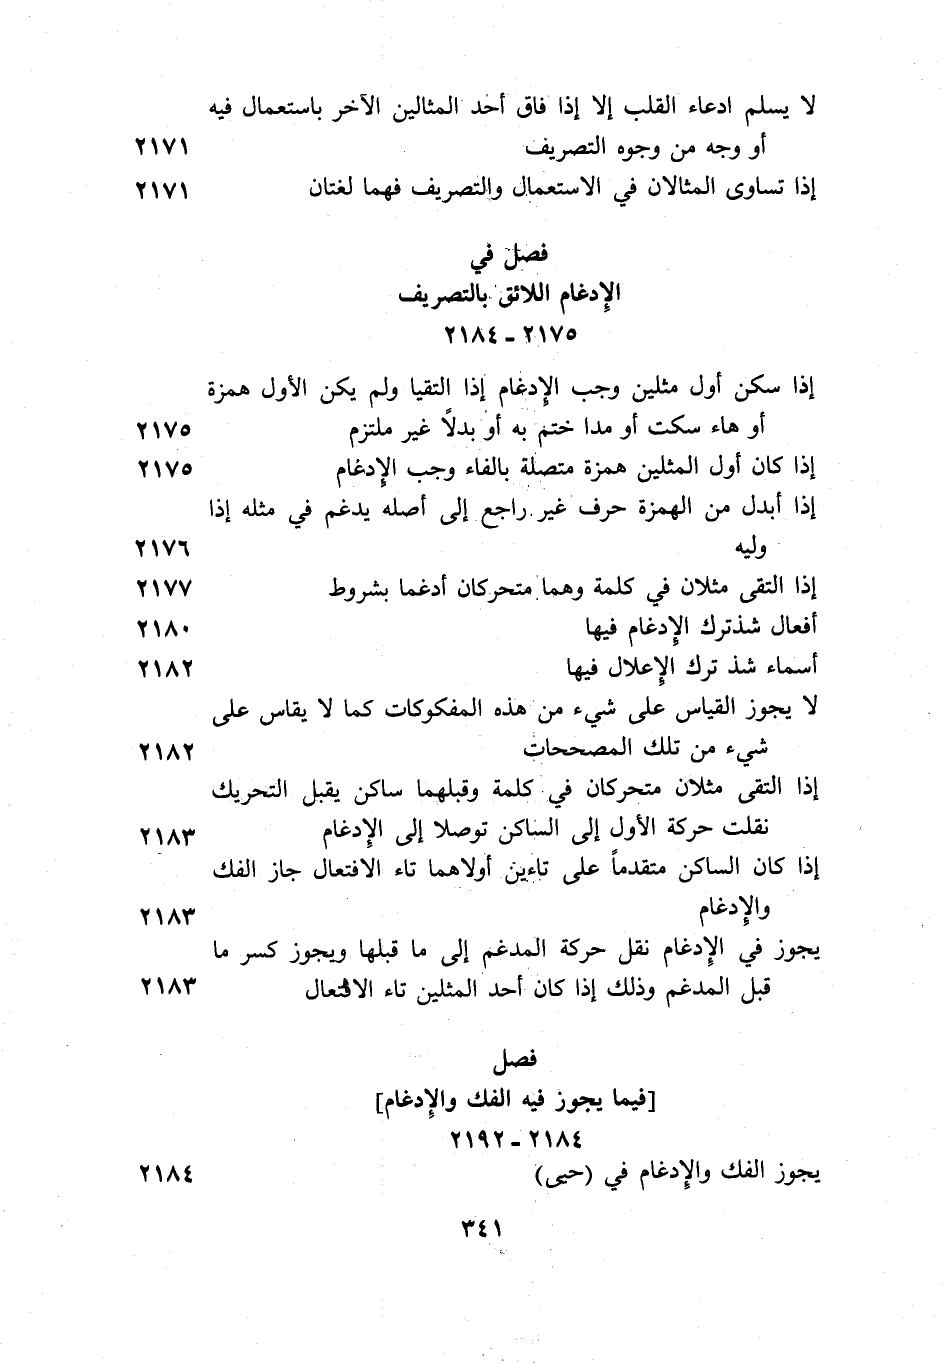 لا يسلم ادعاء القلب إلا إذا فاق أحد المثالين الآخر باستعمال فيه
أو وجه من وجوه التصريف ٢١٧١
إذا تساوى المثالان في الاستعمال والتصريف فهما لغتان ٢١٧١
فصل في
الإدغام اللائق بالتصريف
٢١٧٥ - ٢١٨٤
إذا سكن أول مثلين وجب الإدغام إذا التقيا ولم يكن الأول همزة
أو هاء سكت أو مدا ختم به أو بدلاً غير ملتزم ٢١٧٥
إذا كان أول المثلين همزة متصلة بالفاء وجب الإدغام ٢١٧٥
إذا أبدل من الهمزة حرف غير راجع إلى أصله يدغم في مثله إذا
وليه ٢١٧٦
إذا التقى مثلان في كلمة وهما متحركان أدغما بشروط ٢١٧٧
أفعال شذترك الإدغام فيها ٢١٨٠
أسماء شذ ترك الإعلال فيها ٢١٨٢
لا يجوز القياس على شيء من هذه المفكوكات كما لا يقاس على
شيء من تلك المصححات ٢١٨٢
إذا التقى مثلان متحركان في كلمة وقبلهما ساكن يقبل التحريك
نقلت حركة الأول إلى الساكن توصلا إلى الإدغام ٢١٨٣
إذا كان الساكن متقدماً على تاءين أولاهما تاء الافتعال جاز الفك
والإدغام ٢١٨٣
يجوز في الإدغام نقل حركة المدغم إلى ما قبلها ويجوز كسر ما
قبل المدغم وذلك إذا كان أحد المثلين تاء الافتعال ٢١٨٣
فصل
[فيما يجوز فيه الفك والإدغام]
٢١٨٤ - ٢١٩٢
يجوز الفك والإدغام في (حيى) ٢١٨٤
٣٤١